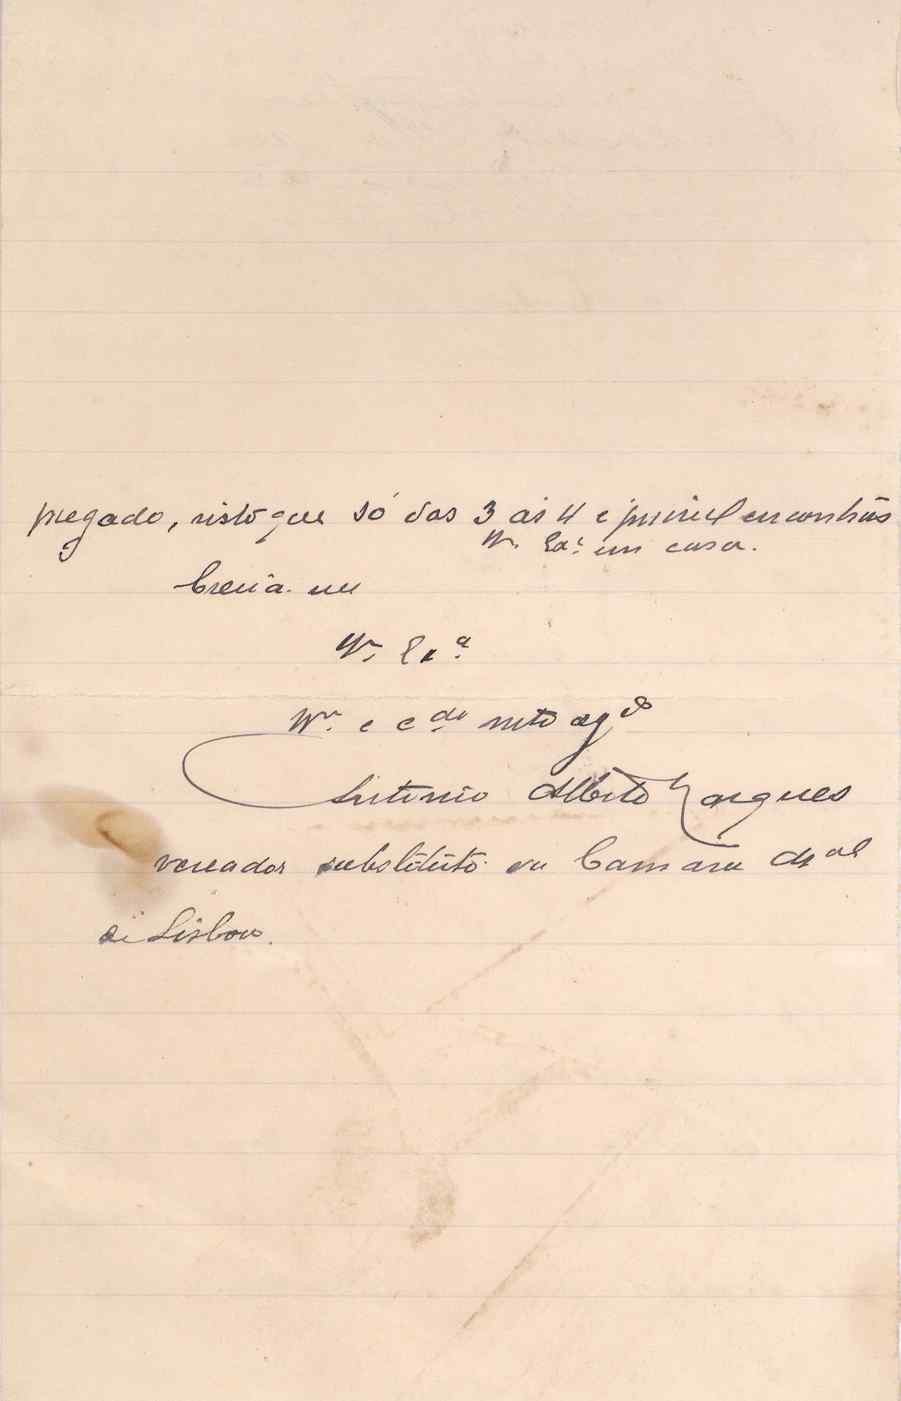 pregado, visto que só das 3 ás 4 é possivel encontrar
V. Exª em casa.
Creia-me
De V. Exª
Vor. e c.do mto obgdo
Antonio Alberto Marques
vereador substituto da Camara Mal
de Lisboa.